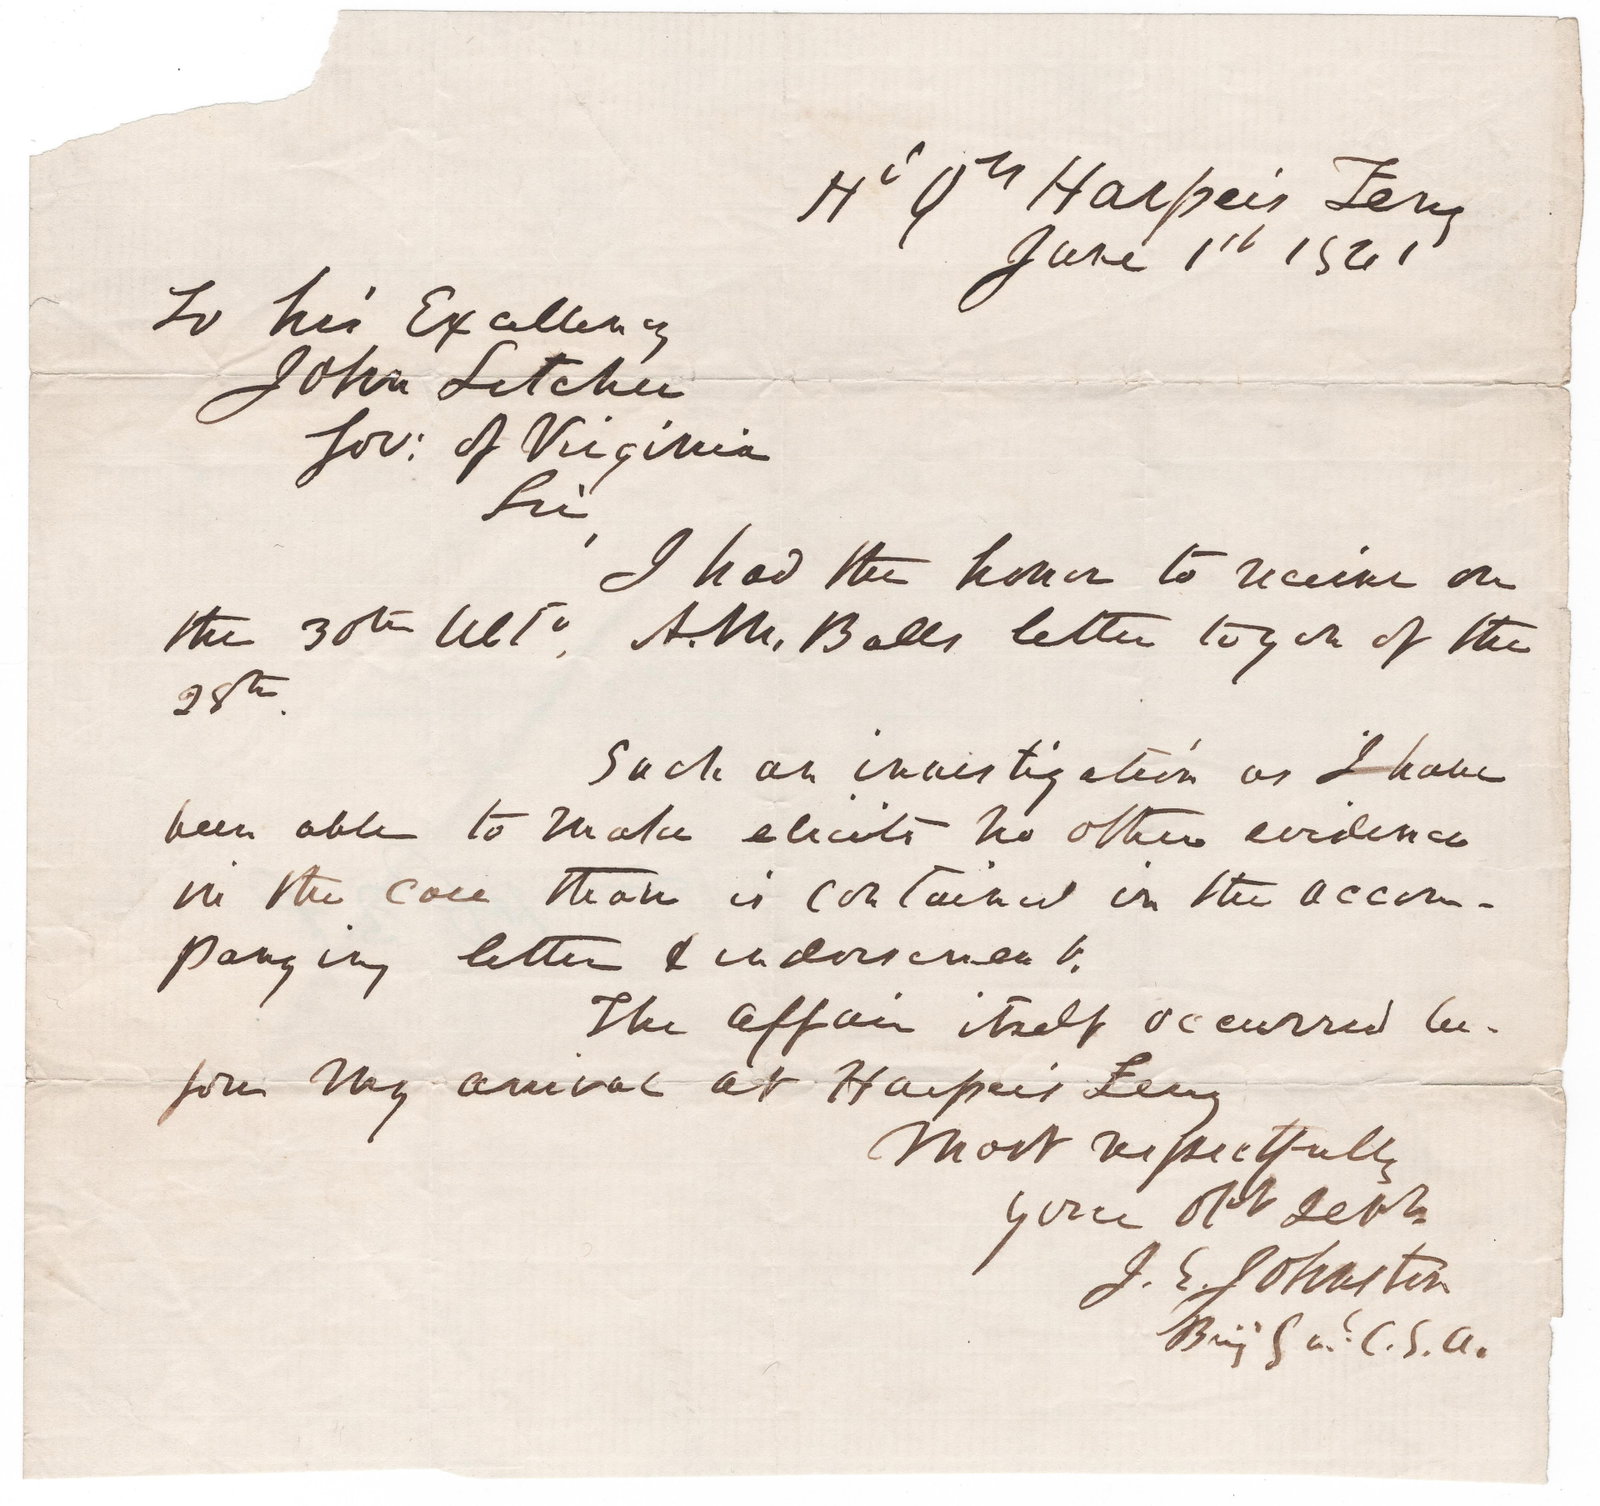 Hd Qrs Harpers Ferry
June 1st 1861
To his Excellency
John Letcher
Gov: of Virginia
Sir,
I had the honor to receive on
the 30th Ulto, A. M. Balls letter to you of the
28th.
Such an investigation as I have
been able to make elicits no other evidence
in the case than is contained in the accom-
panying letter & indorsement.
The affair itself occurred be-
fore my arrival at Harpers Ferry
Most respectfully
your obt Servt
J. E. Johnston
Brig Genl C.S.A.